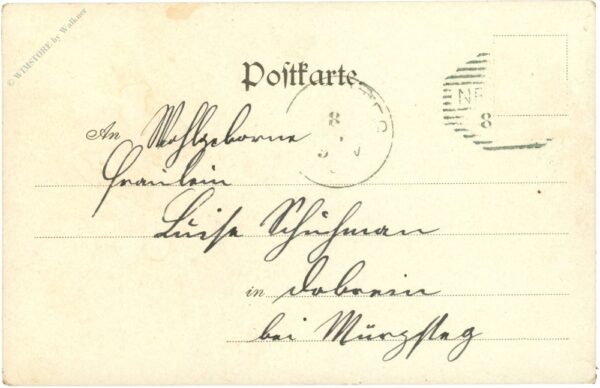 © WIMSTORE by Walkner
Postkarte
8
NE
8
An Wohlgeborne
Fräulein
Luise Schuhman
in Dobrein
bei Mürzsteg